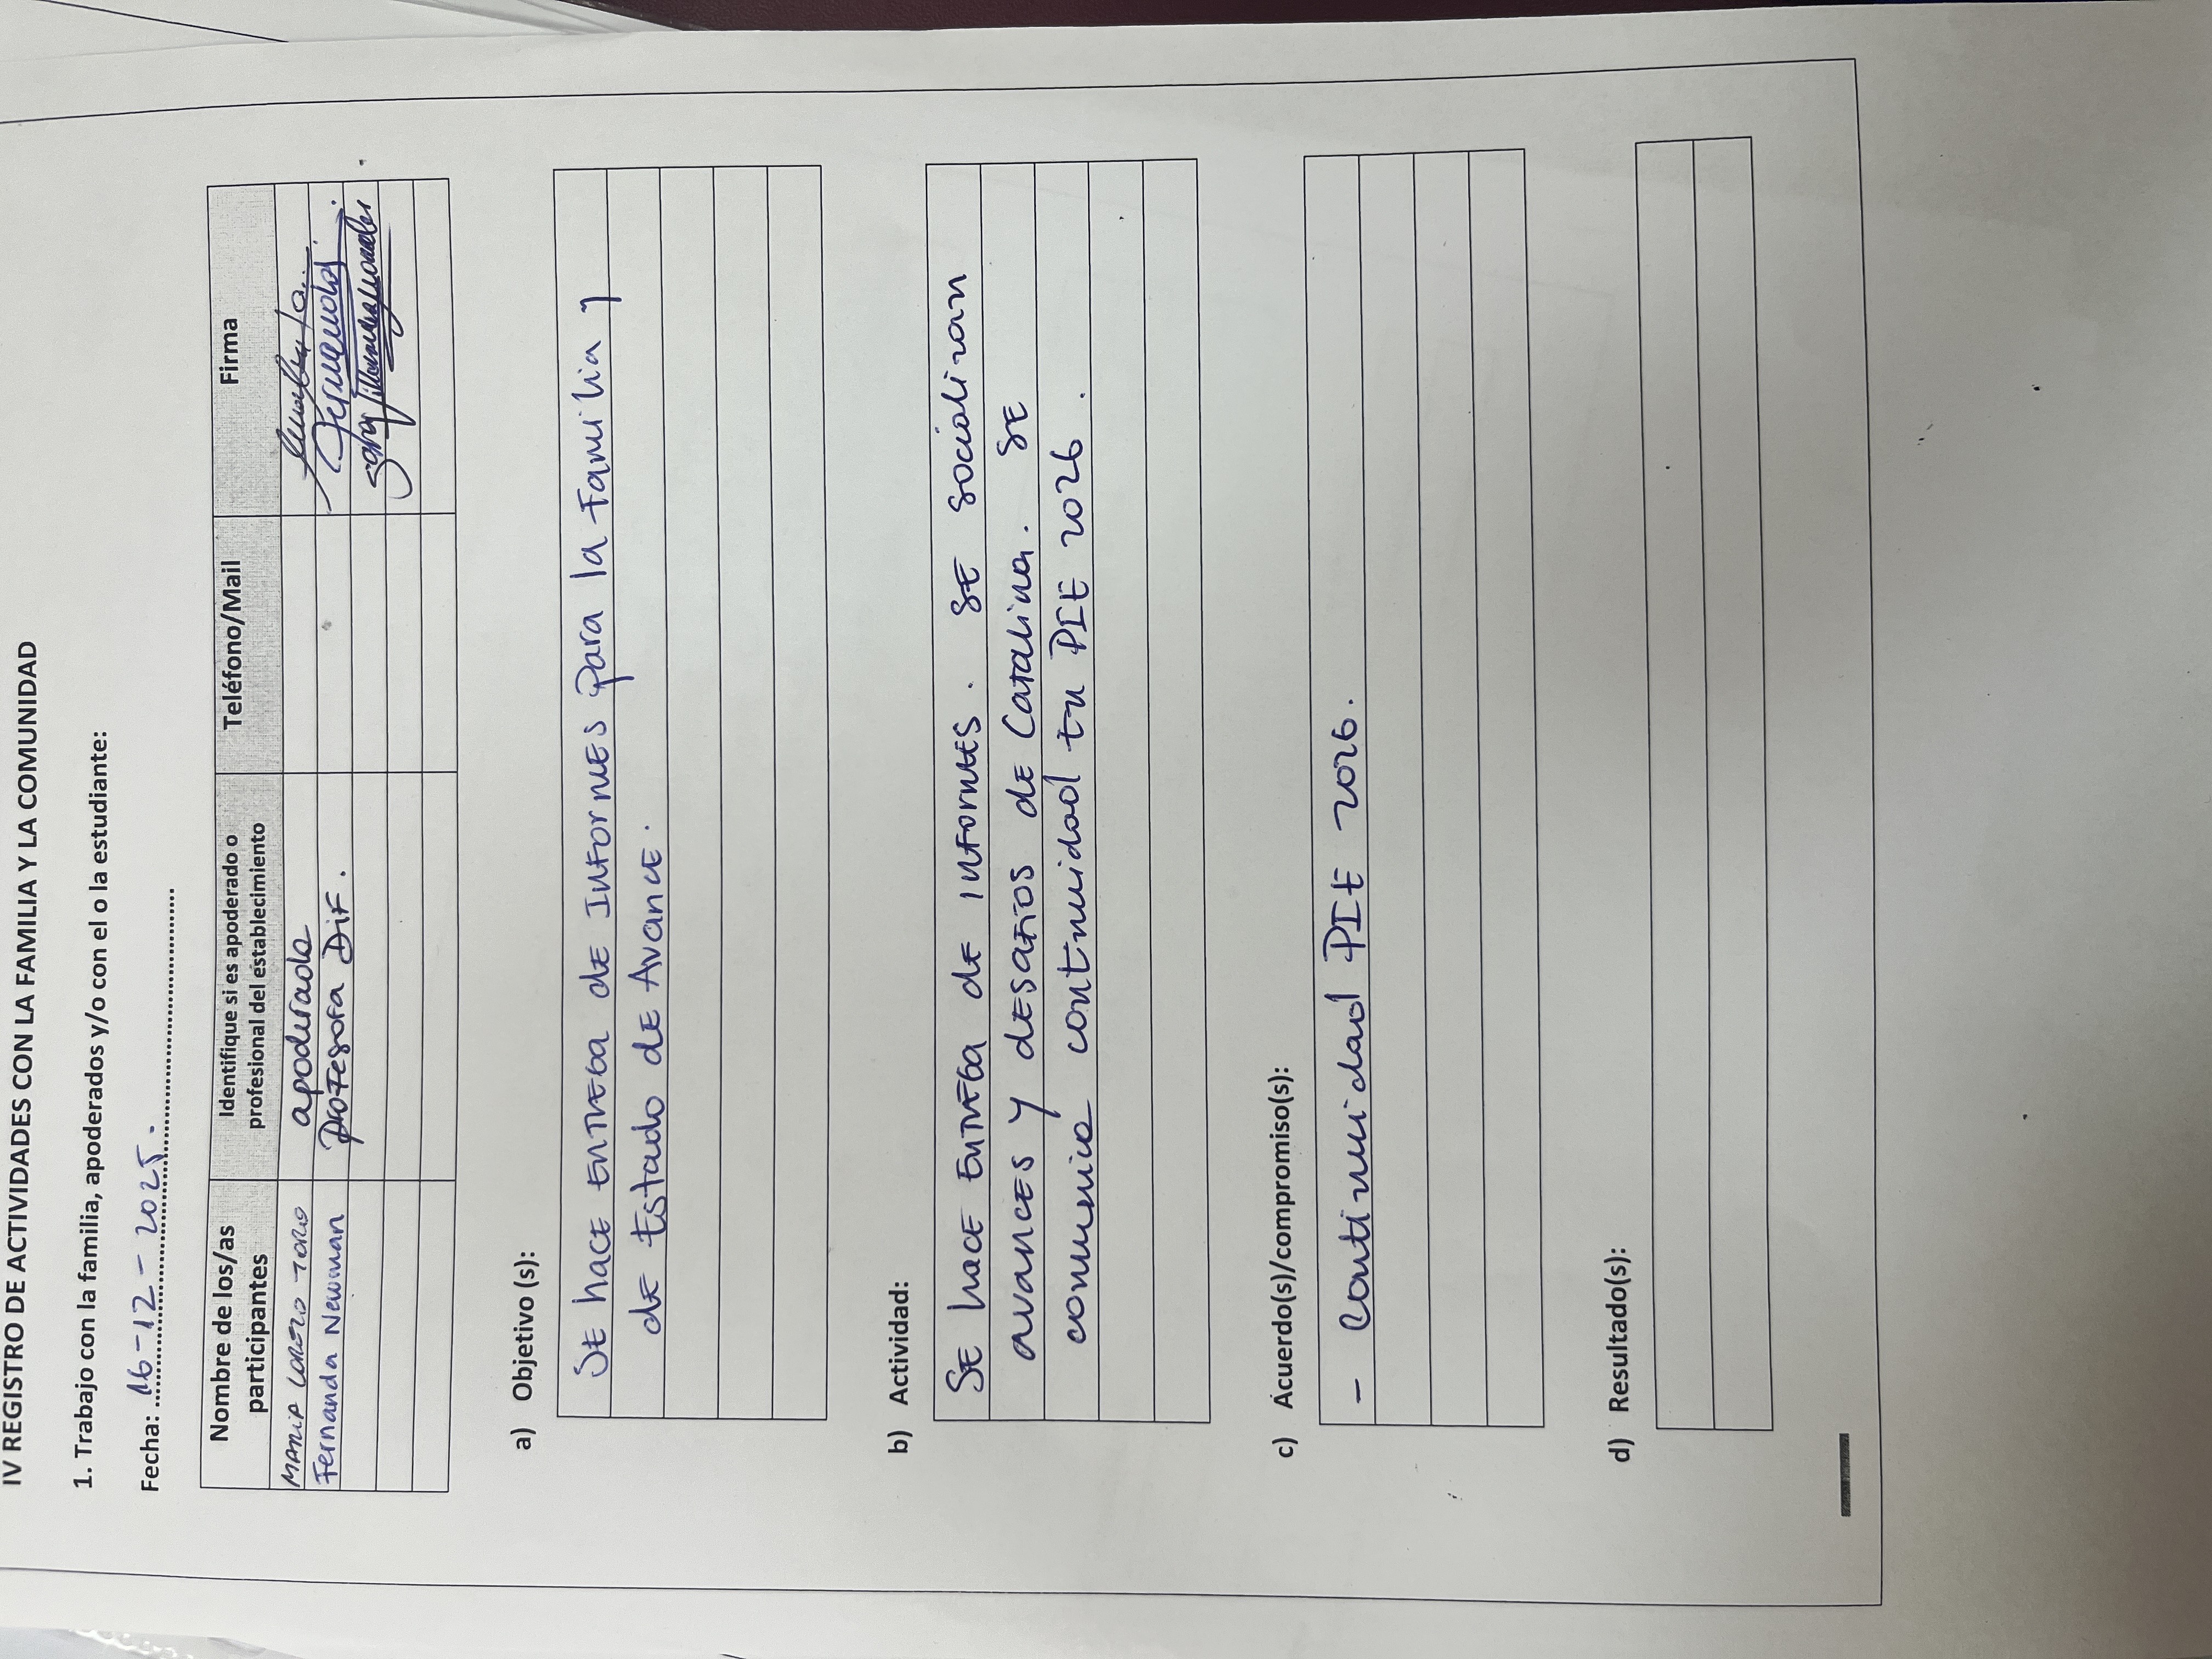 IV REGISTRO DE ACTIVIDADES CON LA FAMILIA Y LA COMUNIDAD
1. Trabajo con la familia, apoderados y/o con el o la estudiante:
Fecha: 16-12-2025.
Nombre de los/as participantes
Identifique si es apoderado o profesional del establecimiento
Teléfono/Mail
Firma
MARIA LORETO TORO apoderada
Fernanda Newman Profesora Dif.
a) Objetivo (s):
SE hace ENTREGA de INFORMES para la Familia y
de Estado de Avance.
b) Actividad:
SE hace ENTREGA de INFORMES. SE socializan
avances y desafíos de Catalina. SE
comunica continuidad en PIE 2026.
c) Acuerdo(s)/compromiso(s):
- Continuidad PIE 2026.
d) Resultado(s):